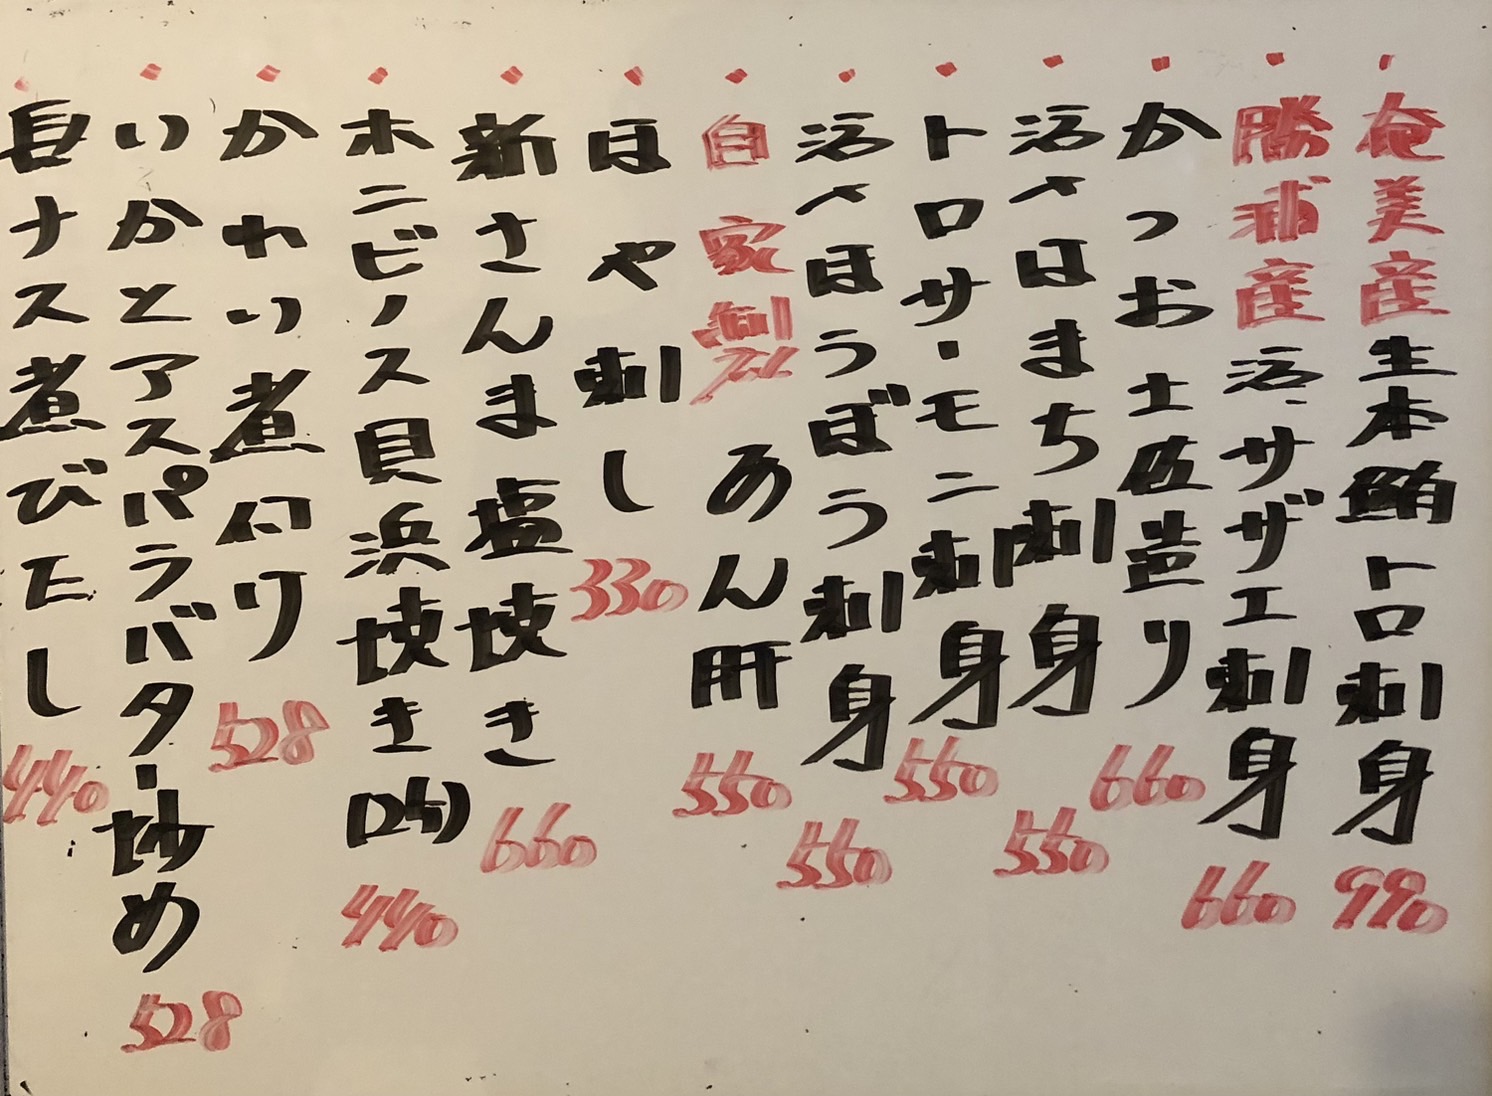 奄美産生本鮪トロ刺身 990
勝浦産活サザエ刺身 660
かつお土佐造り 660
活〆はまち刺身 550
トロサーモン刺身 550
活〆ほうぼう刺身 550
自家製あん肝 550
ほや刺し 330
新さんま塩焼き 660
ホンビノス貝浜焼き(2ケ) 440
かれい煮付け 528
いかとアスパラバター炒め 528
長ナス煮びたし 440